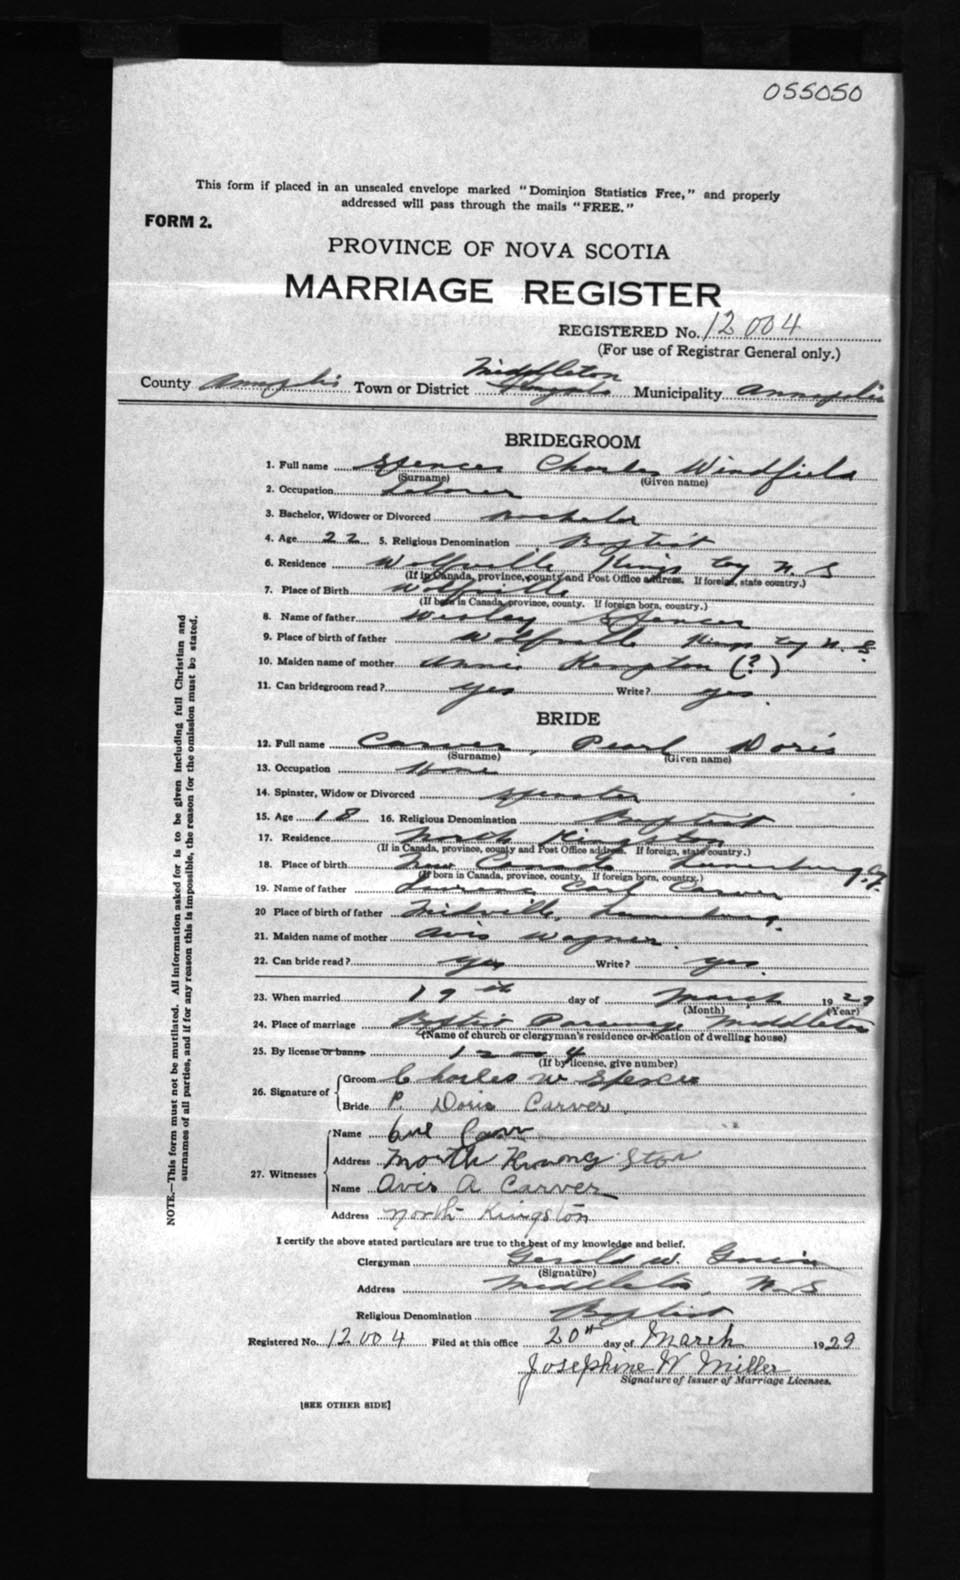 055050
This form if placed in an unsealed envelope marked "Dominion Statistics Free," and properly
addressed will pass through the mails "FREE."
FORM 2.
PROVINCE OF NOVA SCOTIA
MARRIAGE REGISTER
REGISTERED No. 12004
(For use of Registrar General only.)
Middleton
County Annapolis Town or District Municipality Annapolis
BRIDEGROOM
1. Full name Spencer Charles Windfield
(Surname) (Given name)
2. Occupation Laborer
3. Bachelor, Widower or Divorced Bachelor
4. Age 22 5. Religious Denomination Baptist
6. Residence Wolfville Kings Co N. S
(If in Canada, province, county and Post Office address. If foreign, state country.)
7. Place of Birth Wolfville
(If born in Canada, province, county. If foreign born, country.)
8. Name of father Wesley Spencer
9. Place of birth of father Wolfville Kings Co N. S.
10. Maiden name of mother Annie Kempton (?)
11. Can bridegroom read? yes Write? yes.
BRIDE
12. Full name Carver, Pearl Doris
(Surname) (Given name)
13. Occupation Home
14. Spinster, Widow or Divorced Spinster
15. Age 18 16. Religious Denomination Baptist
17. Residence North Kingston
(If in Canada, province, county and Post Office address. If foreign, state country.)
18. Place of birth New Canada Lunenburg Co.
(If born in Canada, province, county. If foreign born, country.)
19. Name of father Laurence Carl Carver
20 Place of birth of father Midville, Lunenburg.
21. Maiden name of mother Avis Wagner.
22. Can bride read? yes Write? yes.
23. When married 19th day of March 1929
(Month) (Year)
24. Place of marriage Baptist Parsonage Middleton
(Name of church or clergyman's residence or location of dwelling house)
25. By license or banns 12004
(If by license, give number)
26. Signature of Groom Charles W Spencer
Bride P. Doris Carver.
27. Witnesses Name
Address North
Name Avis A Carver
Address North Kingston
I certify the above stated particulars are true to the best of my knowledge and belief.
Clergyman Gerald W.
(Signature)
Address Middleton, N. S
Religious Denomination Baptist
Registered No. 12004 Filed at this office 20th day of March 1929
Josephine W Miller
Signature of Issuer of Marriage Licenses.
[SEE OTHER SIDE]
NOTE.—This form must not be mutilated. All information asked for is to be given including full Christian and
surnames of all parties, and if for any reason this is impossible, the reason for the omission must be stated.